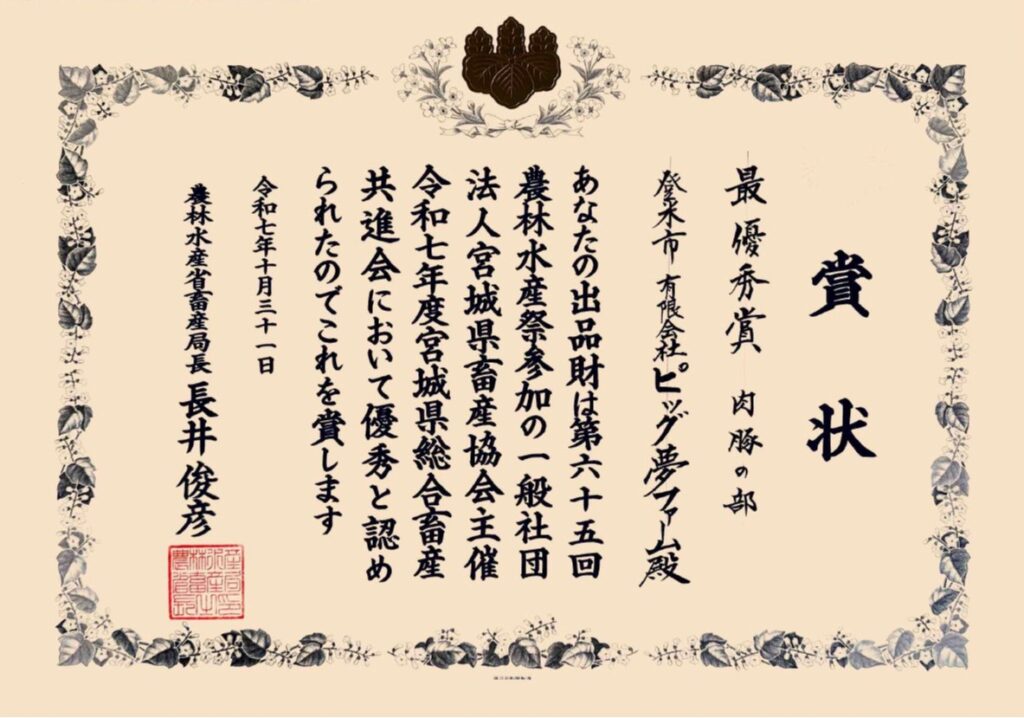 賞状
最優秀賞 肉豚の部
登米市 有限会社ピッグ夢ファーム殿
あなたの出品財は第六十五回
農林水産祭参加の一般社団
法人宮城県畜産協会主催
令和七年度宮城県総合畜産
共進会において優秀と認め
られたのでこれを賞します
令和七年十月三十一日
農林水産省畜産局長 長井俊彦